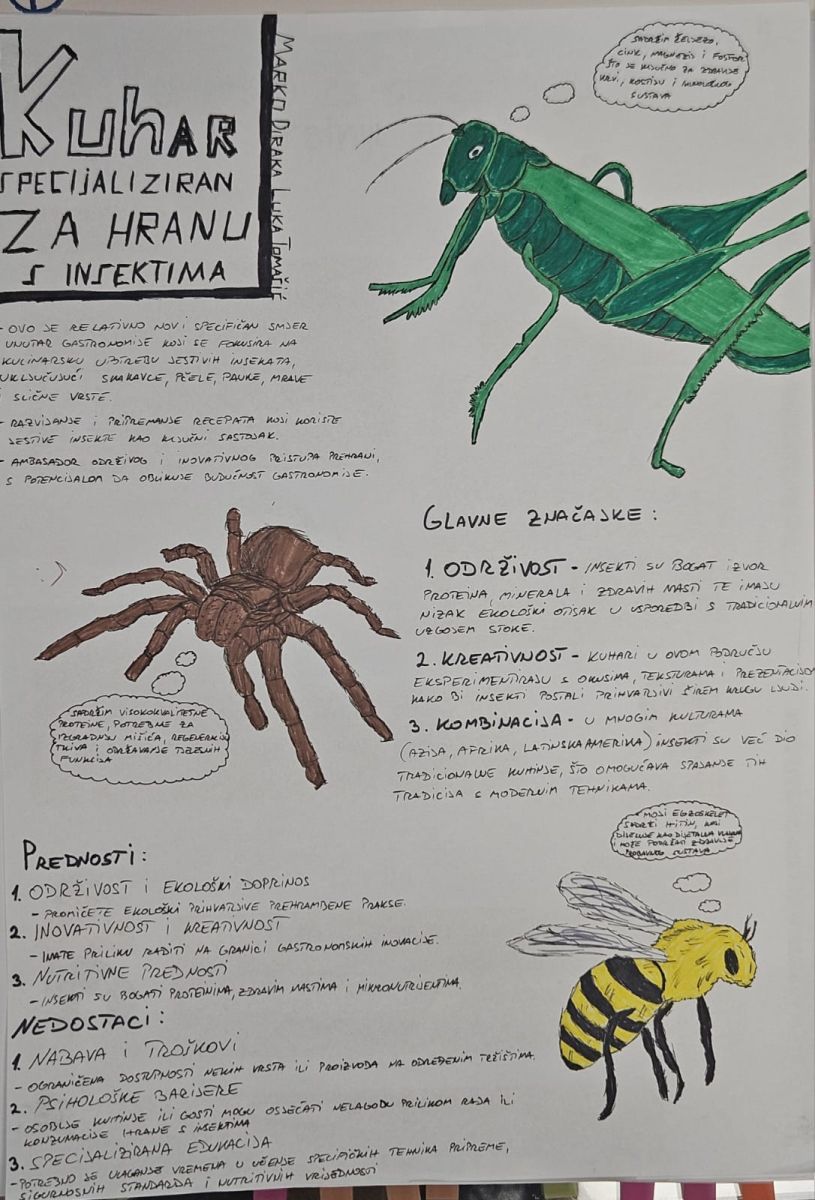 KuhAR
SPECIJALIZIRAN
ZA HRANU
S INSEKTIMA
MARKO DIRAKA LUKA TOMAČIĆ
SADRŽIM ŽELJEZO,
CINK, MAGNEZIJ I FOSFOR
ŠTO JE KLJUČNO ZA ZDRAVLJE
KRVI, KOSTIJU I IMUNOLOŠKOG
SUSTAVA
- OVO JE RELATIVNO NOV I SPECIFIČAN SMJER
UNUTAR GASTRONOMIJE KOJI SE FOKUSIRA NA
KULINARSKU UPOTREBU JESTIVIH INSEKATA,
UKLJUČUJUĆI SKAKAVCE, PČELE, PAUKE, MRAVE
I SLIČNE VRSTE.
- RAZVIJANJE I PRIPREMANJE RECEPATA KOJI KORISTE
JESTIVE INSEKTE KAO KLJUČNI SASTOJAK.
- AMBASADOR ODRŽIVOG I INOVATIVNOG PRISTUPA PREHRANI,
S POTENCIJALOM DA OBLIKUJE BUDUĆNOST GASTRONOMIJE.
:)
SADRŽIM VISOKOKVALITETNE
PROTEINE, POTREBNE ZA
IZGRADNJU MIŠIĆA, REGENERACIJU
TKIVA I ODRŽAVANJE TJELESNIH
FUNKCIJA
GLAVNE ZNAČAJKE:
1. ODRŽIVOST - INSEKTI SU BOGAT IZVOR
PROTEINA, MINERALA I ZDRAVIH MASTI TE IMAJU
NIZAK EKOLOŠKI OTISAK U USPOREDBI S TRADICIONALNIM
UZGOJEM STOKE.
2. KREATIVNOST - KUHARI U OVOM PODRUČJU
EKSPERIMENTIRAJU S OKUSIMA, TEKSTURAMA I PREZENTACIJOM
KAKO BI INSEKTI POSTALI PRIHVATLJIVI ŠIREM KRUGU LJUDI.
3. KOMBINACIJA - U MNOGIM KULTURAMA
(AZIJA, AFRIKA, LATINSKA AMERIKA) INSEKTI SU VEĆ DIO
TRADICIONALNE KUHINJE, ŠTO OMOGUĆAVA SPAJANJE TIH
TRADICIJA S MODERNIM TEHNIKAMA.
MOJ EGZOSKELET
SADRŽI HITIN, KOJI
DJELUJE KAO DIJETALNA VLAKNA
I MOŽE PODRŽATI ZDRAVLJE
PROBAVNOG SUSTAVA
PREDNOSTI:
1. ODRŽIVOST I EKOLOŠKI DOPRINOS
- PROMIČETE EKOLOŠKI PRIHVATLJIVE PREHRAMBENE PRAKSE.
2. INOVATIVNOST I KREATIVNOST
- IMATE PRILIKU RADITI NA GRANICI GASTRONOMSKIH INOVACIJE.
3. NUTRITIVNE PREDNOSTI
- INSEKTI SU BOGATI PROTEINIMA, ZDRAVIM MASTIMA I MIKRONUTRIJENTIMA.
NEDOSTACI:
1. NABAVA I TROŠKOVI
- OGRANIČENA DOSTUPNOSTI NEKIH VRSTA ILI PROIZVODA NA ODREĐENIM TRŽIŠTIMA.
2. PSIHOLOŠKE BARIJERE
- OSOBLJE KUHINJE ILI GOSTI MOGU OSJEĆATI NELAGODU PRILIKOM RADA ILI
KONZUMACIJE HRANE S INSEKTIMA
3. SPECIJALIZIRANA EDUKACIJA
- POTREBNO JE ULAGANJE VREMENA U UČENJE SPECIFIČNIH TEHNIKA PRIPREME,
SIGURNOSNIH STANDARDA I NUTRITIVNIH VRIJEDNOSTI